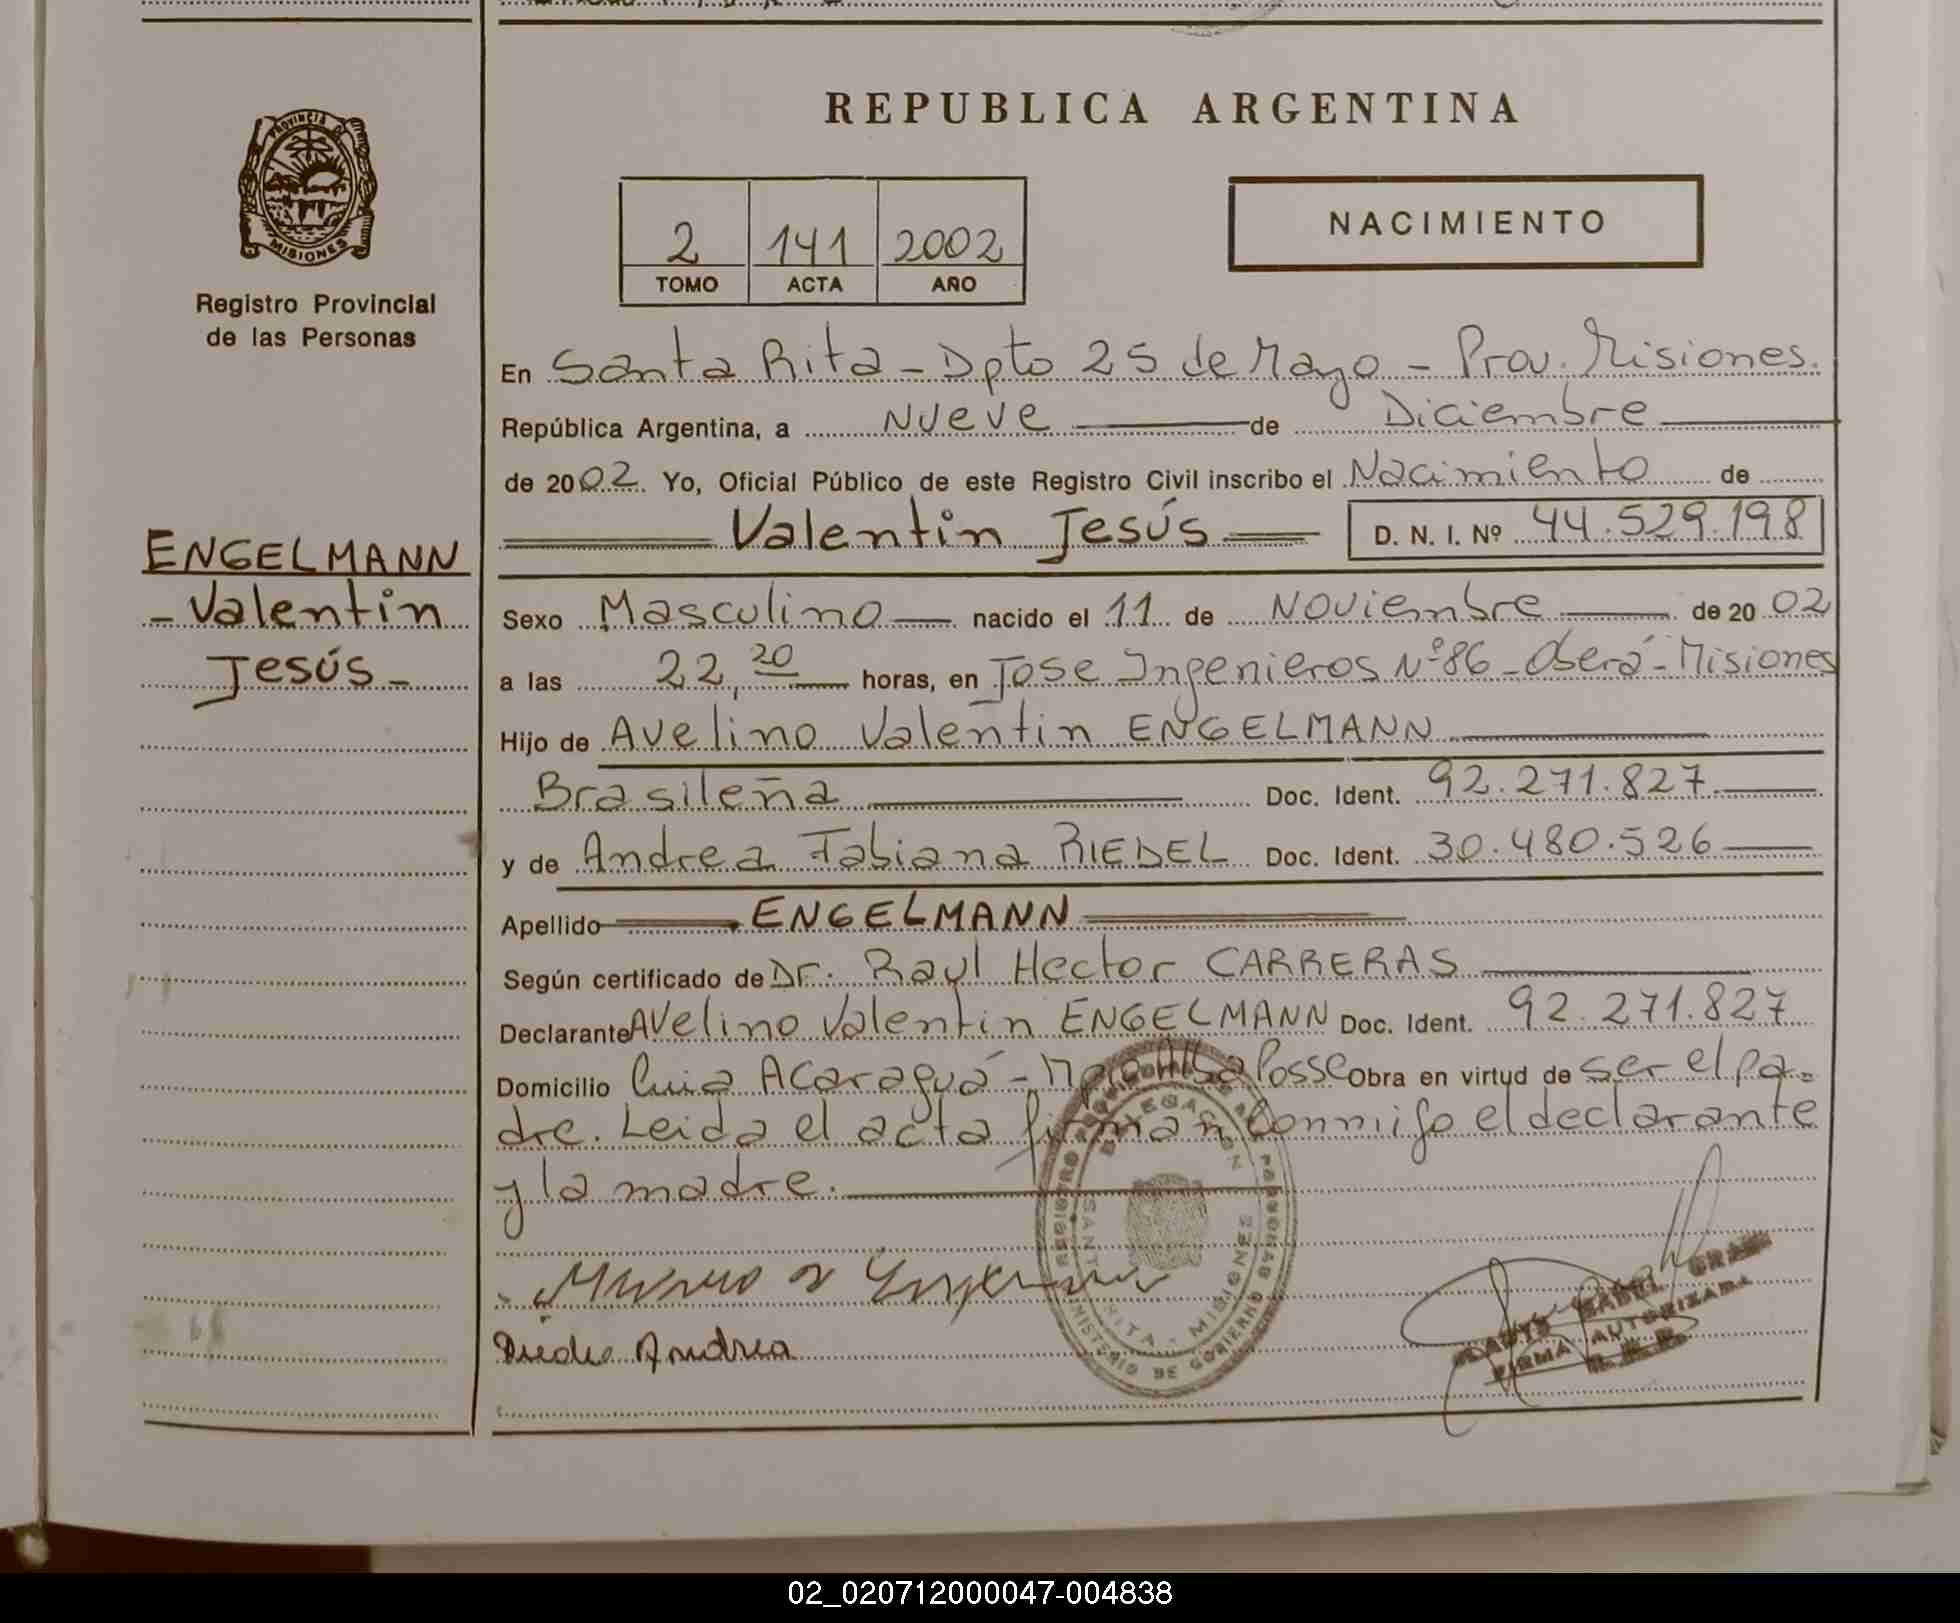 REPUBLICA ARGENTINA
PROVINCIA DE
MISIONES
Registro Provincial
de las Personas
2 141 2002
TOMO ACTA AÑO
NACIMIENTO
En Santa Rita - Dpto 25 de Mayo - Prov. Misiones.
República Argentina, a Nueve de Diciembre
de 2002. Yo, Oficial Público de este Registro Civil inscribo el Nacimiento de
Valentin Jesús D. N. I. Nº 44.529.198
ENGELMANN
- Valentin
Jesús -
Sexo Masculino nacido el 11 de Noviembre de 2002
a las 22,20 horas, en Jose Ingenieros Nº 86 - Oberá - Misiones
Hijo de Avelino Valentin ENGELMANN
Brasileña Doc. Ident. 92.271.827
y de Andrea Fabiana RIEDEL Doc. Ident. 30.480.526
Apellido ENGELMANN
Según certificado de Dr. Raul Hector CARRERAS
Declarante Avelino Valentin ENGELMANN Doc. Ident. 92.271.827
Domicilio Acaraguá - Alba Posse Obra en virtud de ser el pa-
dre. Leida el acta firman conmigo el declarante
y la madre.
DELEGACION
SANTA RITA - MISIONES
MINISTERIO DE GOBIERNO
Andrea
ISABEL
FIRMA AUTORIZADA
02_020712000047-004838